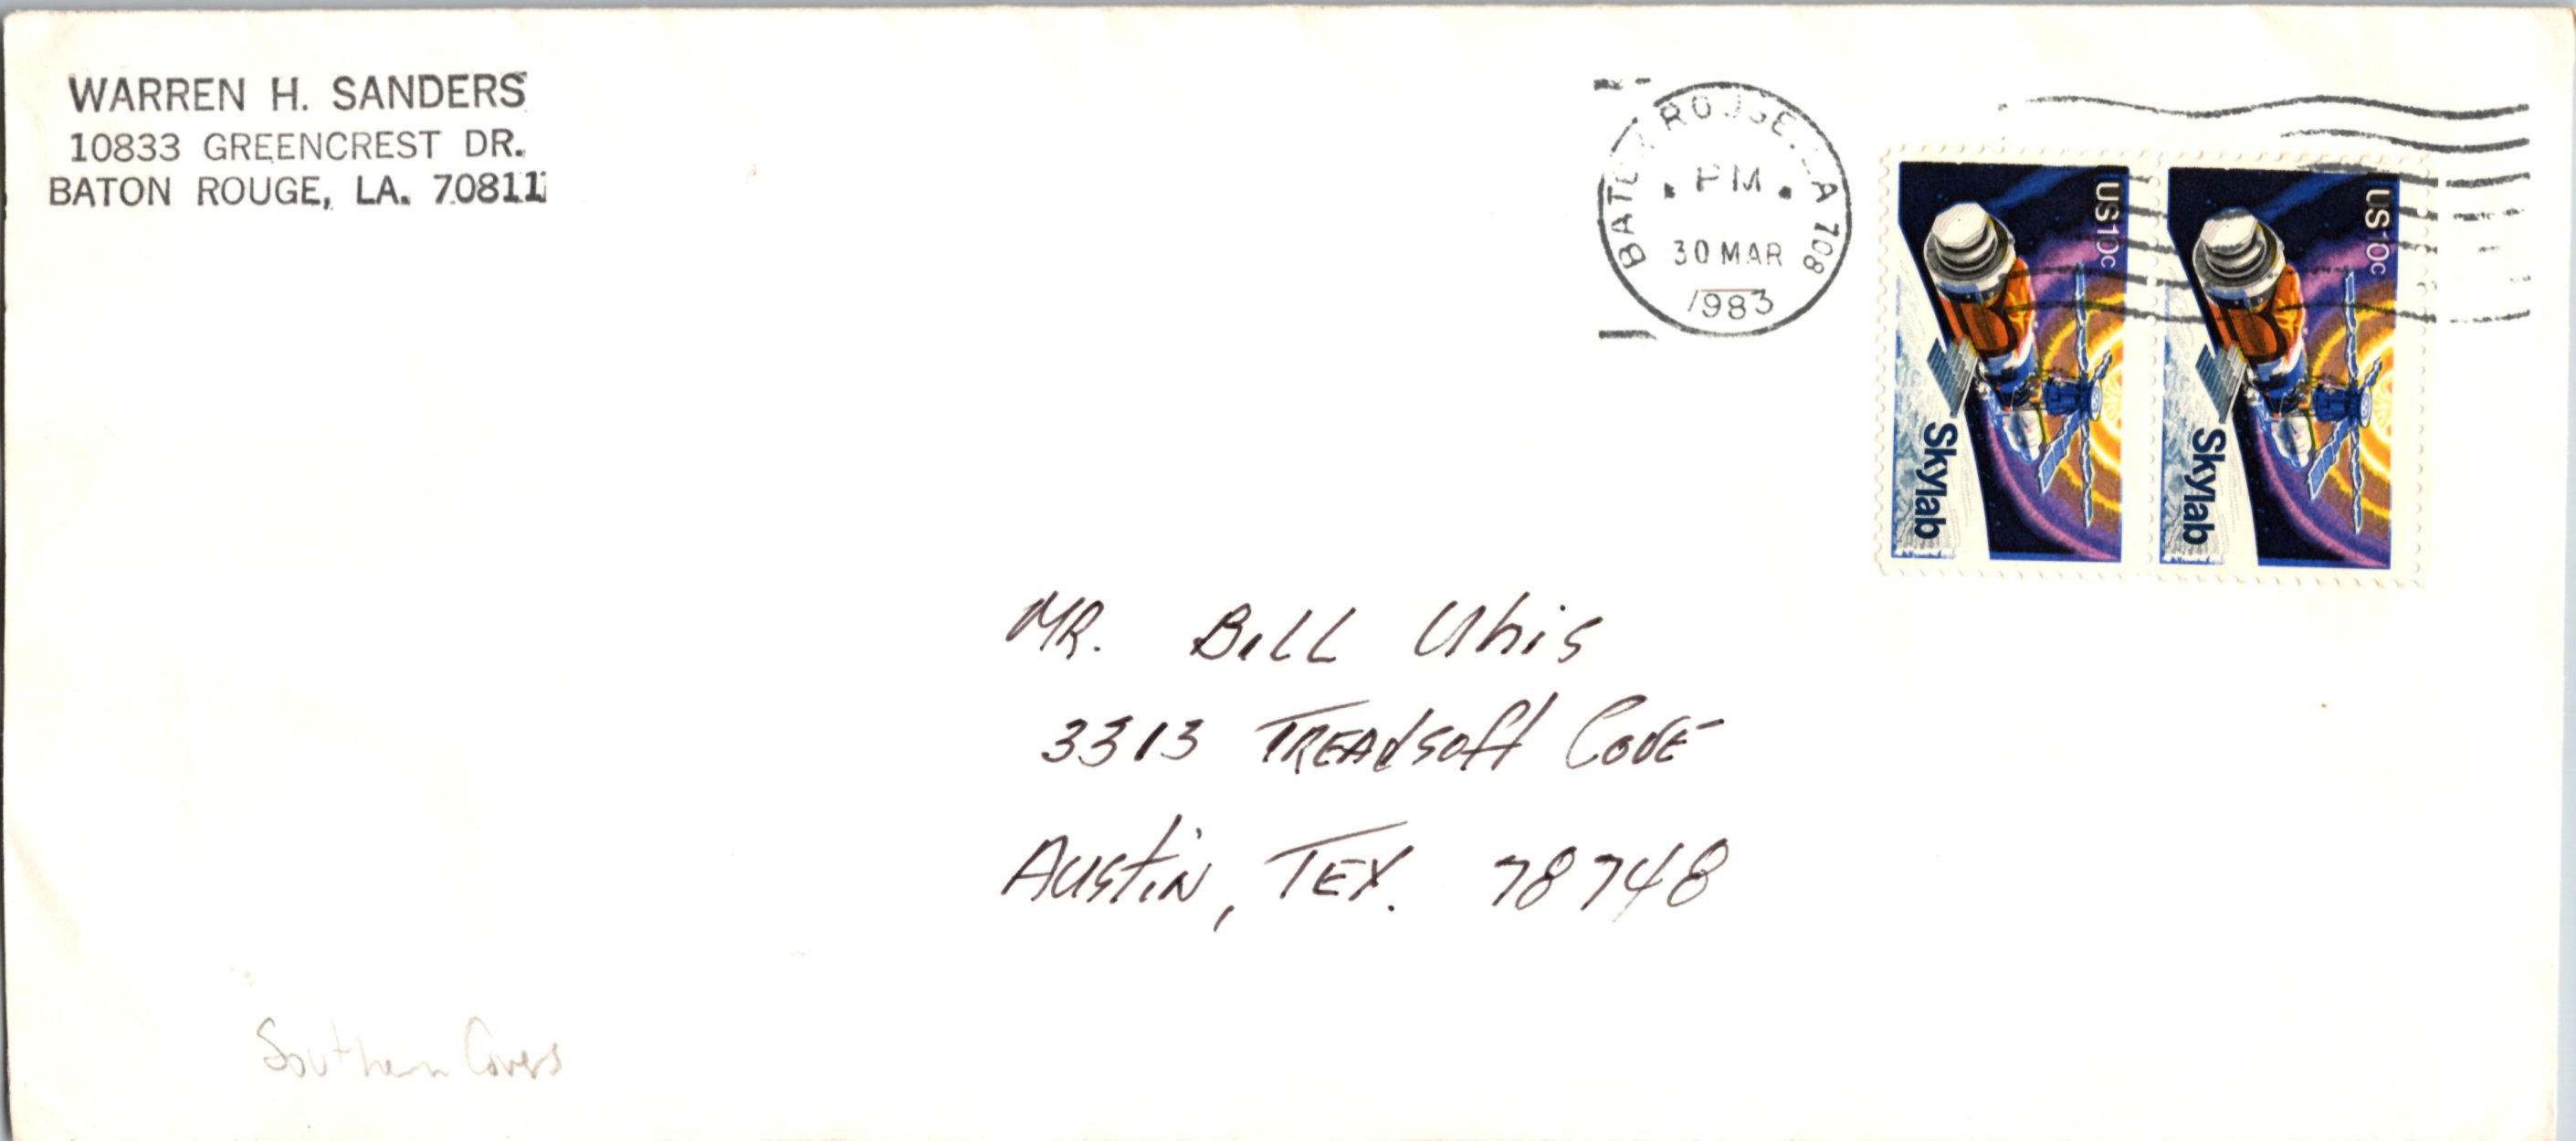 WARREN H. SANDERS
10833 GREENCREST DR.
BATON ROUGE, LA. 70811
BATON ROUGE, LA 708
PM
30 MAR
1983
US10c
Skylab
US10c
Skylab
MR. Bill Uhis
3313 TREADSOft COVE
AUStiN, TEX. 78748
Southern Covers